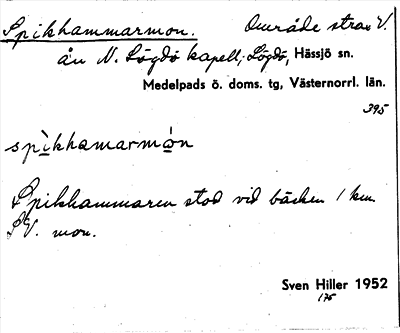 Spikhammarmon. Område strax V.
ån N. Lögdö kapell, Lögdö, Hässjö sn.
Medelpads ö. doms. tg, Västernorrl. län.
395
spìkhamarmón
Spikhammaren stod vid bäcken 1 km.
SV. mon.
Sven Hiller 1952
175